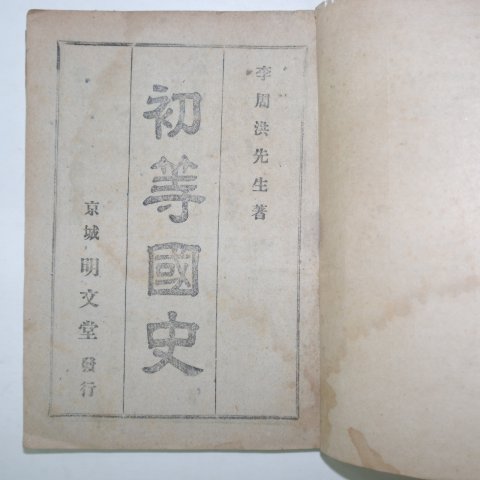 李周洪先生著
初等國史
京城 明文堂 發行